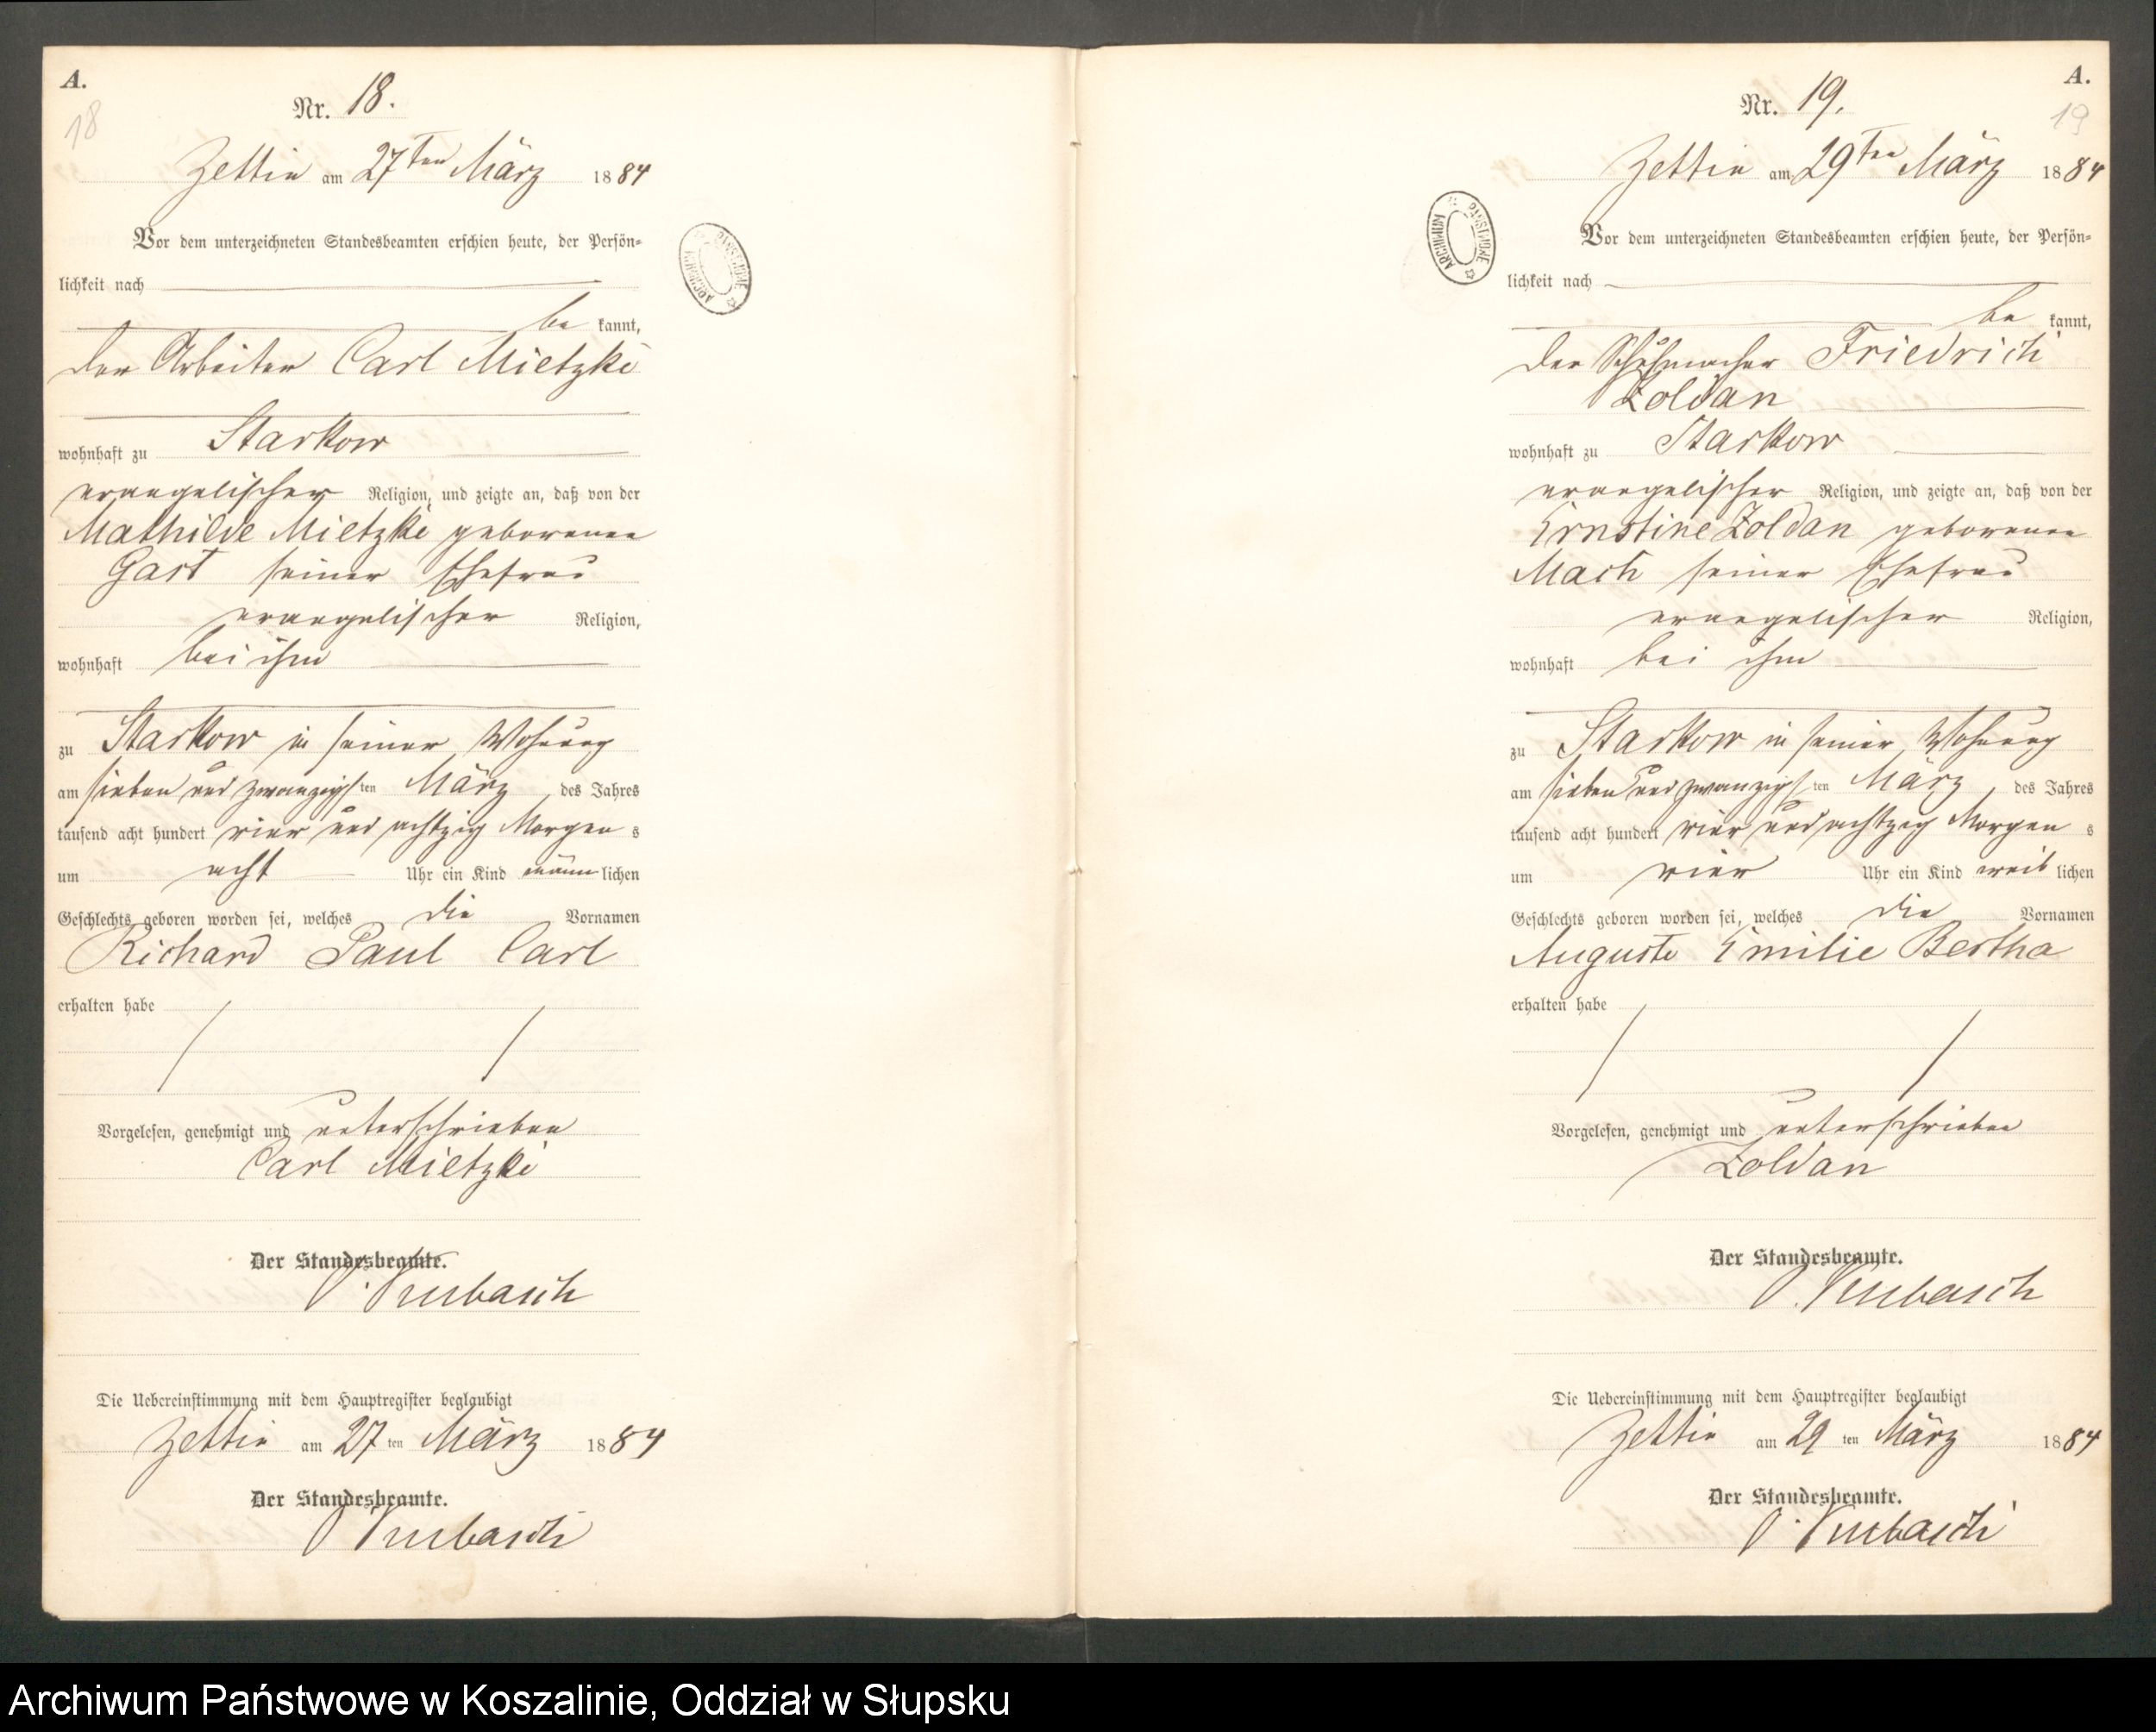 A.
18
Nr. 18.
Zettin am 27ten März 1884
Vor dem unterzeichneten Standesbeamten erschien heute, der Persön-
lichkeit nach
be kannt,
der Arbeiter Carl Mietzke
wohnhaft zu Starkow
evangelischer Religion, und zeigte an, daß von der
Mathilde Mietzke geborenen
Gast seiner Ehefrau
evangelischer Religion,
wohnhaft bei ihm
zu Starkow in seiner Wohnung
am sieben und zwanzigsten März des Jahres
tausend acht hundert vier und achtzig Morgens
um acht Uhr ein Kind männlichen
Geschlechts geboren worden sei, welches die Vornamen
Richard Paul Carl
erhalten habe
Vorgelesen, genehmigt und unterschrieben
Carl Mietzke
Der Standesbeamte.
Die Uebereinstimmung mit dem Hauptregister beglaubigt
Zettin am 27 ten März 1884
Der Standesbeamte.
ARCHIWUM PAŃSTWOWE
A.
19
Nr. 19.
Zettin am 29ten März 1884
Vor dem unterzeichneten Standesbeamten erschien heute, der Persön-
lichkeit nach
be kannt,
der Schuhmacher Friedrich
Zoldan
wohnhaft zu Starkow
evangelischer Religion, und zeigte an, daß von der
Ernstine Zoldan geborenen
Mach seiner Ehefrau
evangelischer Religion,
wohnhaft bei ihm
zu Starkow in seiner Wohnung
am sieben und zwanzigsten März des Jahres
tausend acht hundert vier und achtzig Morgens
um vier Uhr ein Kind weiblichen
Geschlechts geboren worden sei, welches die Vornamen
Auguste Emilie Bertha
erhalten habe
Vorgelesen, genehmigt und unterschrieben
Zoldan
Der Standesbeamte.
Die Uebereinstimmung mit dem Hauptregister beglaubigt
Zettin am 29 ten März 1884
Der Standesbeamte.
ARCHIWUM PAŃSTWOWE
Archiwum Państwowe w Koszalinie, Oddział w Słupsku